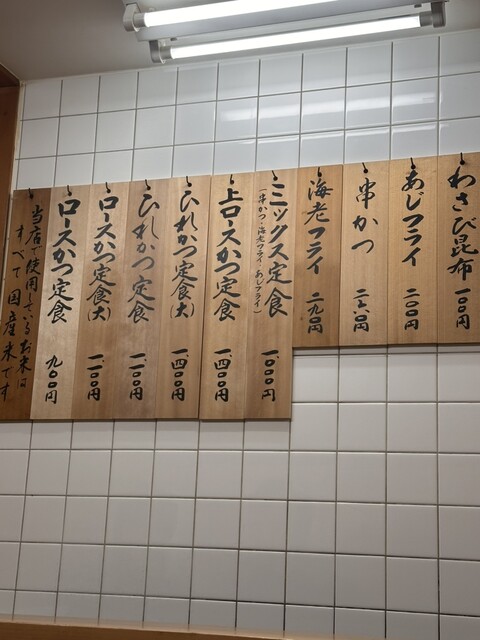 わさび昆布 一〇〇円
あじフライ 二〇〇円
串かつ
海老フライ 二九〇円
ミックス定食 一、〇〇〇円
(串かつ・海老フライ・あじフライ)
上ロースかつ定食 一、四〇〇円
ひれかつ定食(大) 一、四〇〇円
ひれかつ定食 一、一〇〇円
ロースかつ定食(大) 一、一〇〇円
ロースかつ定食 九〇〇円
当店で使用しているお米は
すべて国産米です